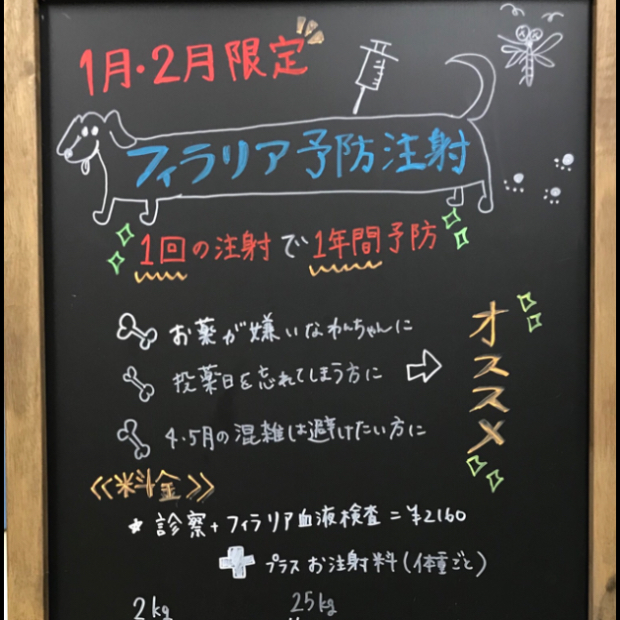 1月・2月限定
フィラリア予防注射
1回の注射で1年間予防
お薬が嫌いなわんちゃんに
投薬日を忘れてしまう方に
4・5月の混雑は避けたい方に
オススメ
《料金》
★ 診察+フィラリア血液検査=¥2160
プラスお注射料(体重ごと)
2kg 25kg